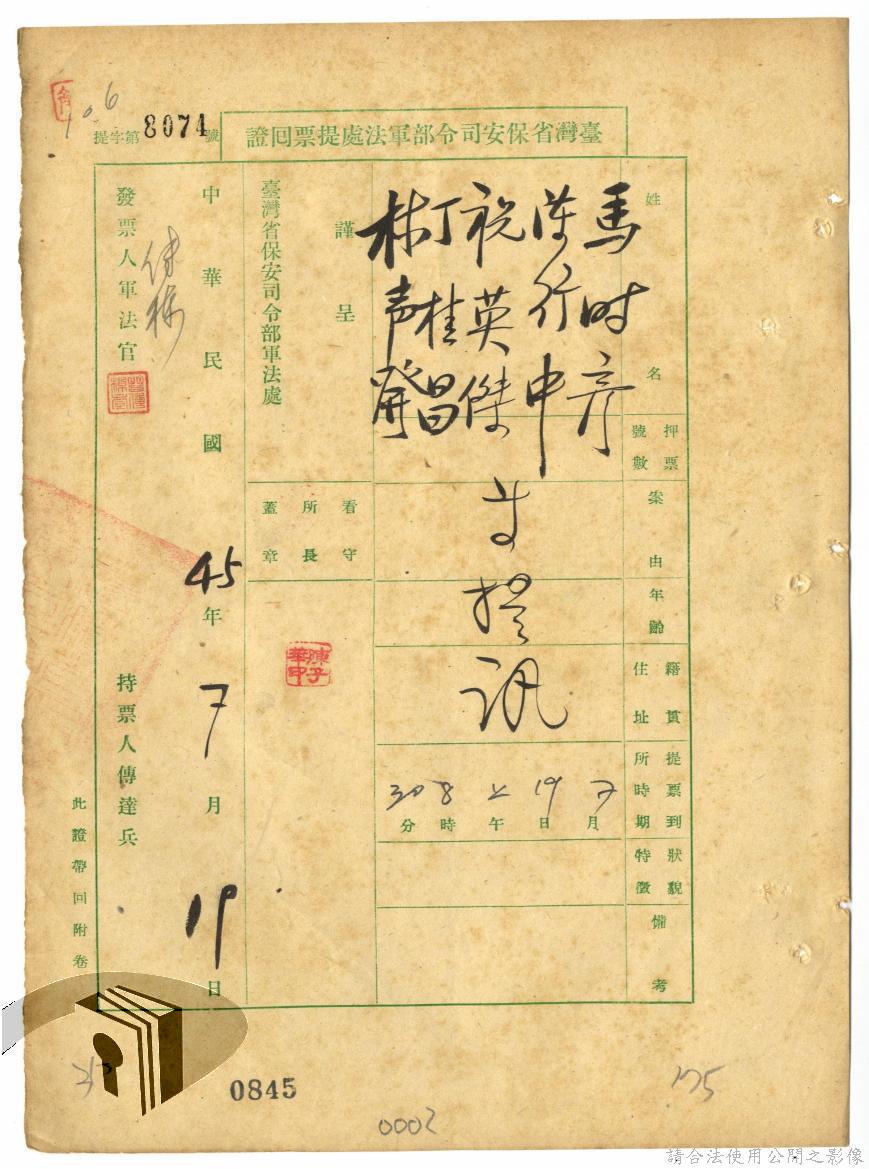 提字第8074號
臺灣省保安司令部軍法處提票回證
姓名
馬时彦
陳行中
祝英傑
丁桂昌
林声發
押票號數
案由
年齡
籍貫住址
提訊
提票到所時期
7月19日上午8時30分
狀貌特徵
備考
謹呈
臺灣省保安司令部軍法處
看守所長蓋章
陳子華印
中華民國45年7月19日
發票人軍法官
持票人傳達兵
此證帶回附卷
0845
0002
175
請合法使用公開之影像